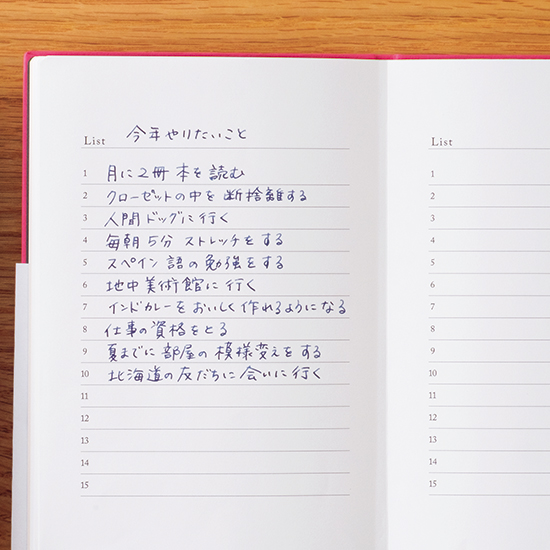 List 今年やりたいこと
1 月に2冊本を読む
2 クローゼットの中を断捨離する
3 人間ドッグに行く
4 毎朝5分ストレッチをする
5 スペイン語の勉強をする
6 地中美術館に行く
7 インドカレーをおいしく作れるようになる
8 仕事の資格をとる
9 夏までに部屋の模様変えをする
10 北海道の友だちに会いに行く
11
12
13
14
15
List
1
2
3
4
5
6
7
8
9
10
11
12
13
14
15